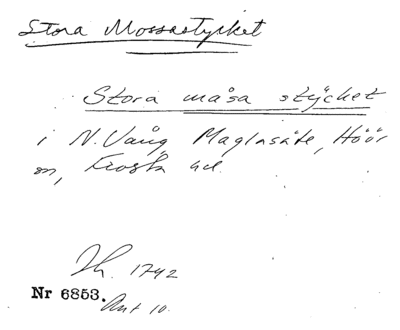 Stora Mossastycket
Stora måsa stÿcket
i N. Vång Maglasäte, Höör
sn, Frosta hd.
Lh. 1742
Nr 6853. Akt 10.